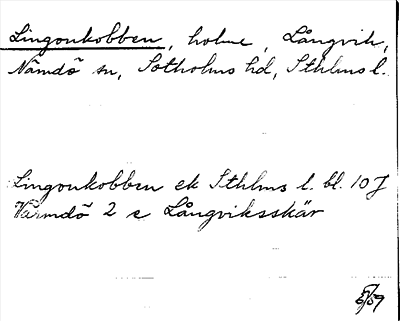 Lingonkobben, holme, Långvik,
Nämdö sn, Sotholms hd, Sthlms l.
Lingonkobben ek Sthlms l. bl. 10 J
Värmdö 2 e Långviksskär